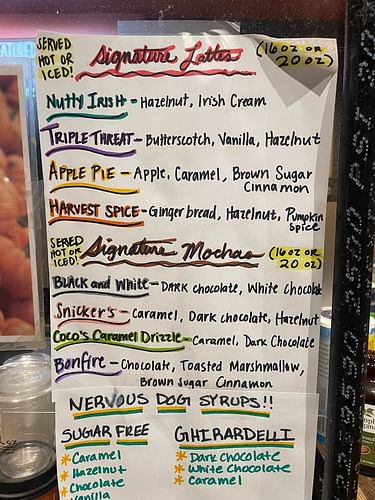 SERVED
HOT OR
ICED!
Signature Lattes
(16 OZ OR
20 OZ)
NUTTY IRISH - Hazelnut, Irish Cream
TRIPLE THREAT - Butterscotch, Vanilla, Hazelnut
APPLE PIE - Apple, Caramel, Brown Sugar
Cinnamon
HARVEST SPICE - Gingerbread, Hazelnut, Pumpkin
Spice
SERED
HOT OR
ICED!
Signature Mochas
(16 OZ OR
20 OZ)
BLACK and WHITE - DARK chocolate, WHITE Chocolate
Snickers - Caramel, Dark chocolate, Hazelnut
Coco's Caramel Drizzle - Caramel, Dark Chocolate
Bonfire - Chocolate, Toasted Marshmallow,
Brown Sugar Cinnamon
NERVOUS DOG SYRUPS!!
SUGAR FREE
* Caramel
* Hazelnut
* Chocolate
Vanilla
GHIRARDELLI
* Dark chocolate
* White Chocolate
* Caramel